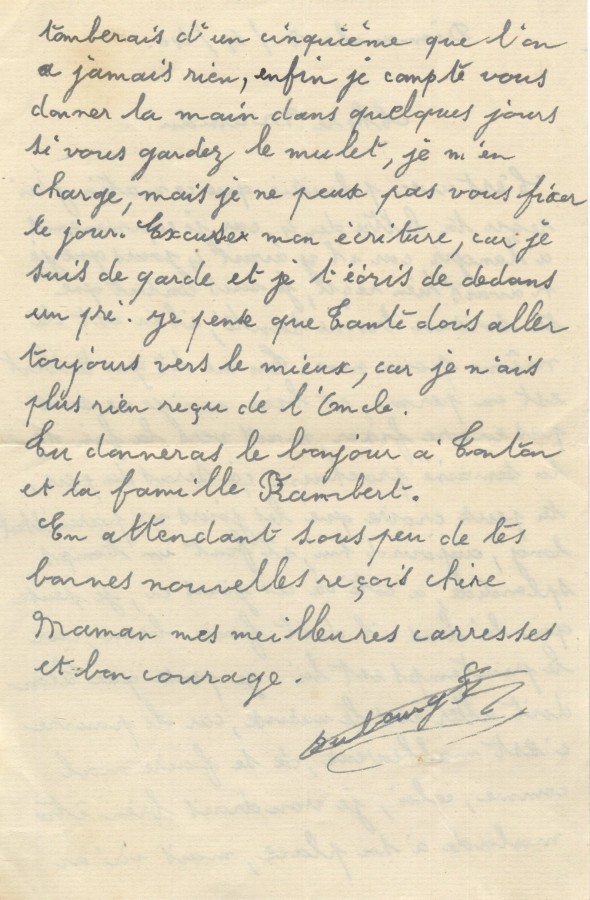 tomberais d'un cinquième que l'on
a jamais rien, enfin je compte vous
donner la main dans quelques jours
si vous gardez le mulet, je m'en
charge, mais je ne peux pas vous fixer
le jour. Excusez mon écriture, car je
suis de garde et je t'écris de dedans
un pré. je pense que Tante dois aller
toujours vers le mieux, car je n'ais
plus rien reçu de l'Oncle.
Tu donneras le bonjour à Tonton
et la famille Rambert.
En attendant sous peu de tes
bonnes nouvelles reçois chère
Maman mes meilleures carresses
et bon courage.